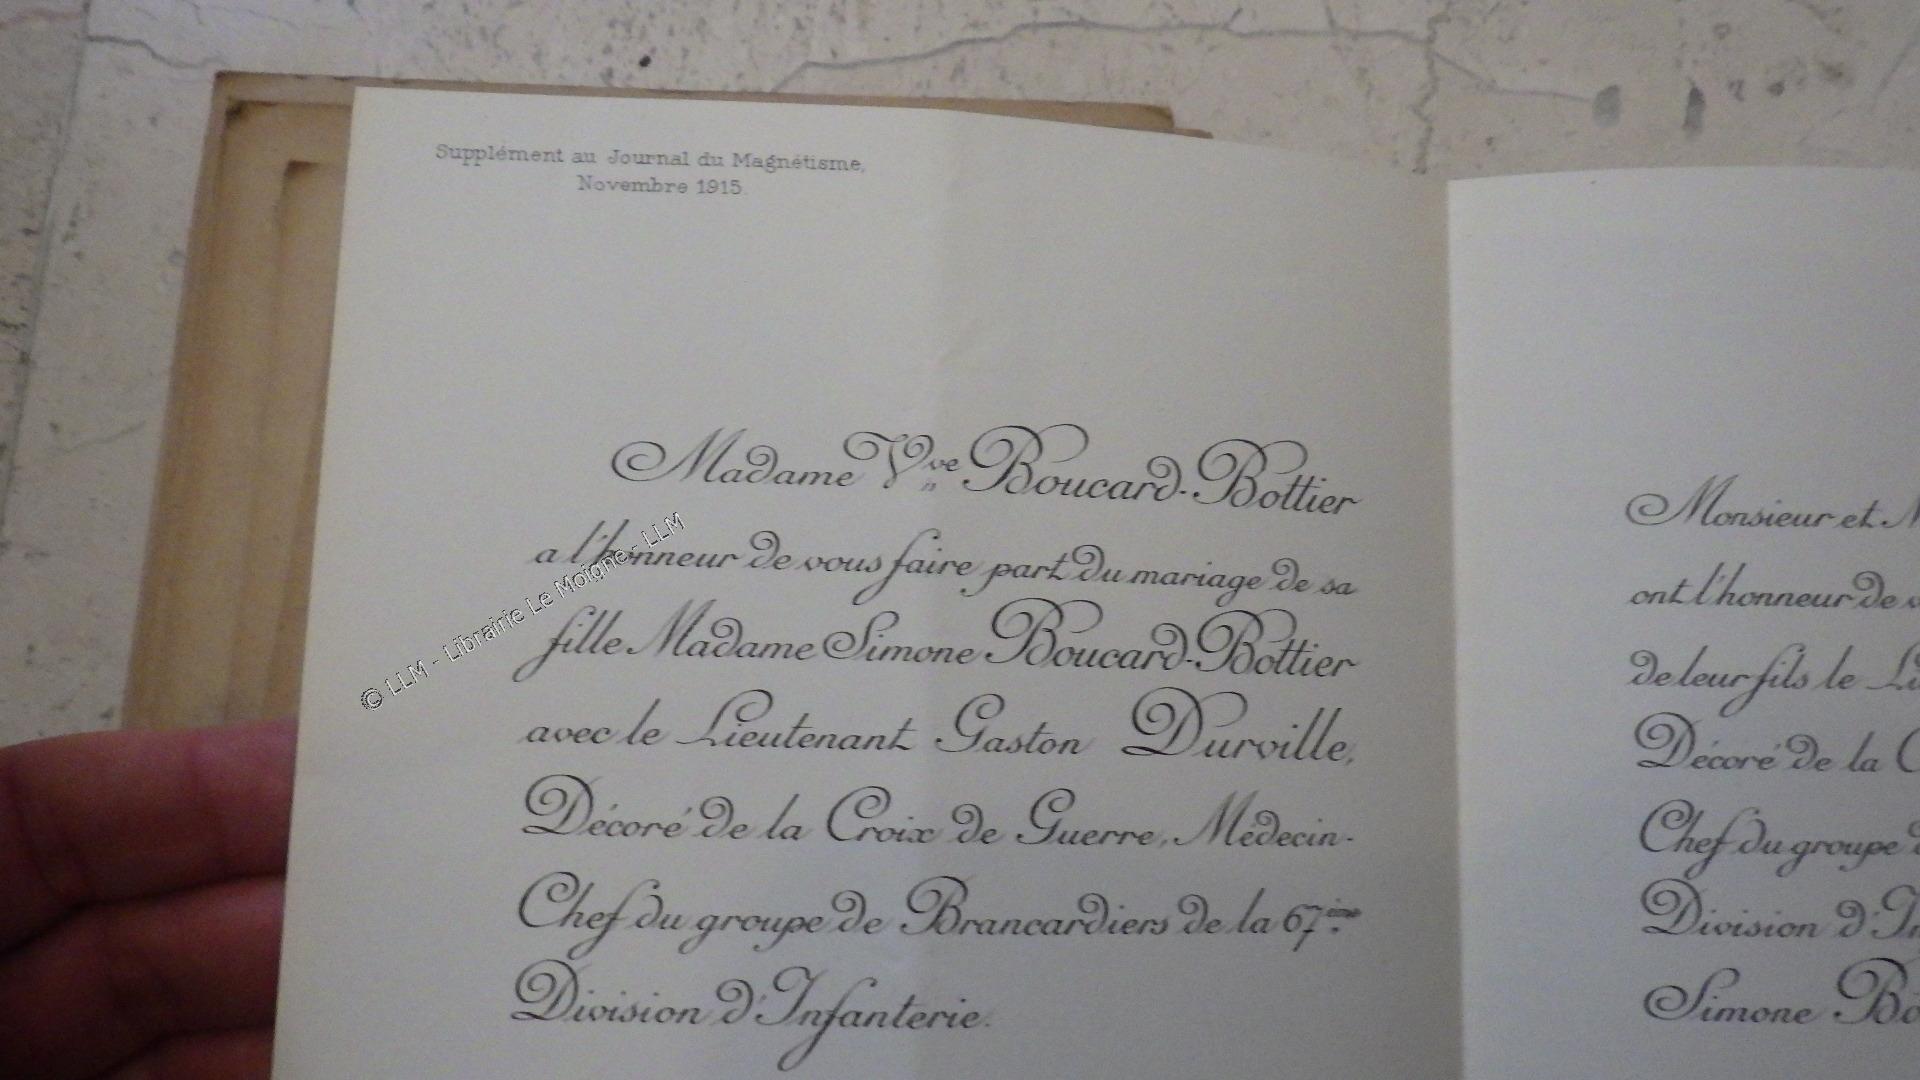 Supplément au Journal du Magnétisme,
Novembre 1915.
Madame Vve Boucard-Bottier
a l'honneur de vous faire part du mariage de sa
fille Madame Simone Boucard-Bottier
avec le Lieutenant Gaston Durville,
Décoré de la Croix de Guerre, Médecin-
Chef du groupe de Brancardiers de la 67ème
Division d'Infanterie.
Monsieur et
ont l'honneur de
de leur fils le
Décoré de la
Chef du groupe
Division
Simone
© LLM - Librairie Le Moigne - LLM